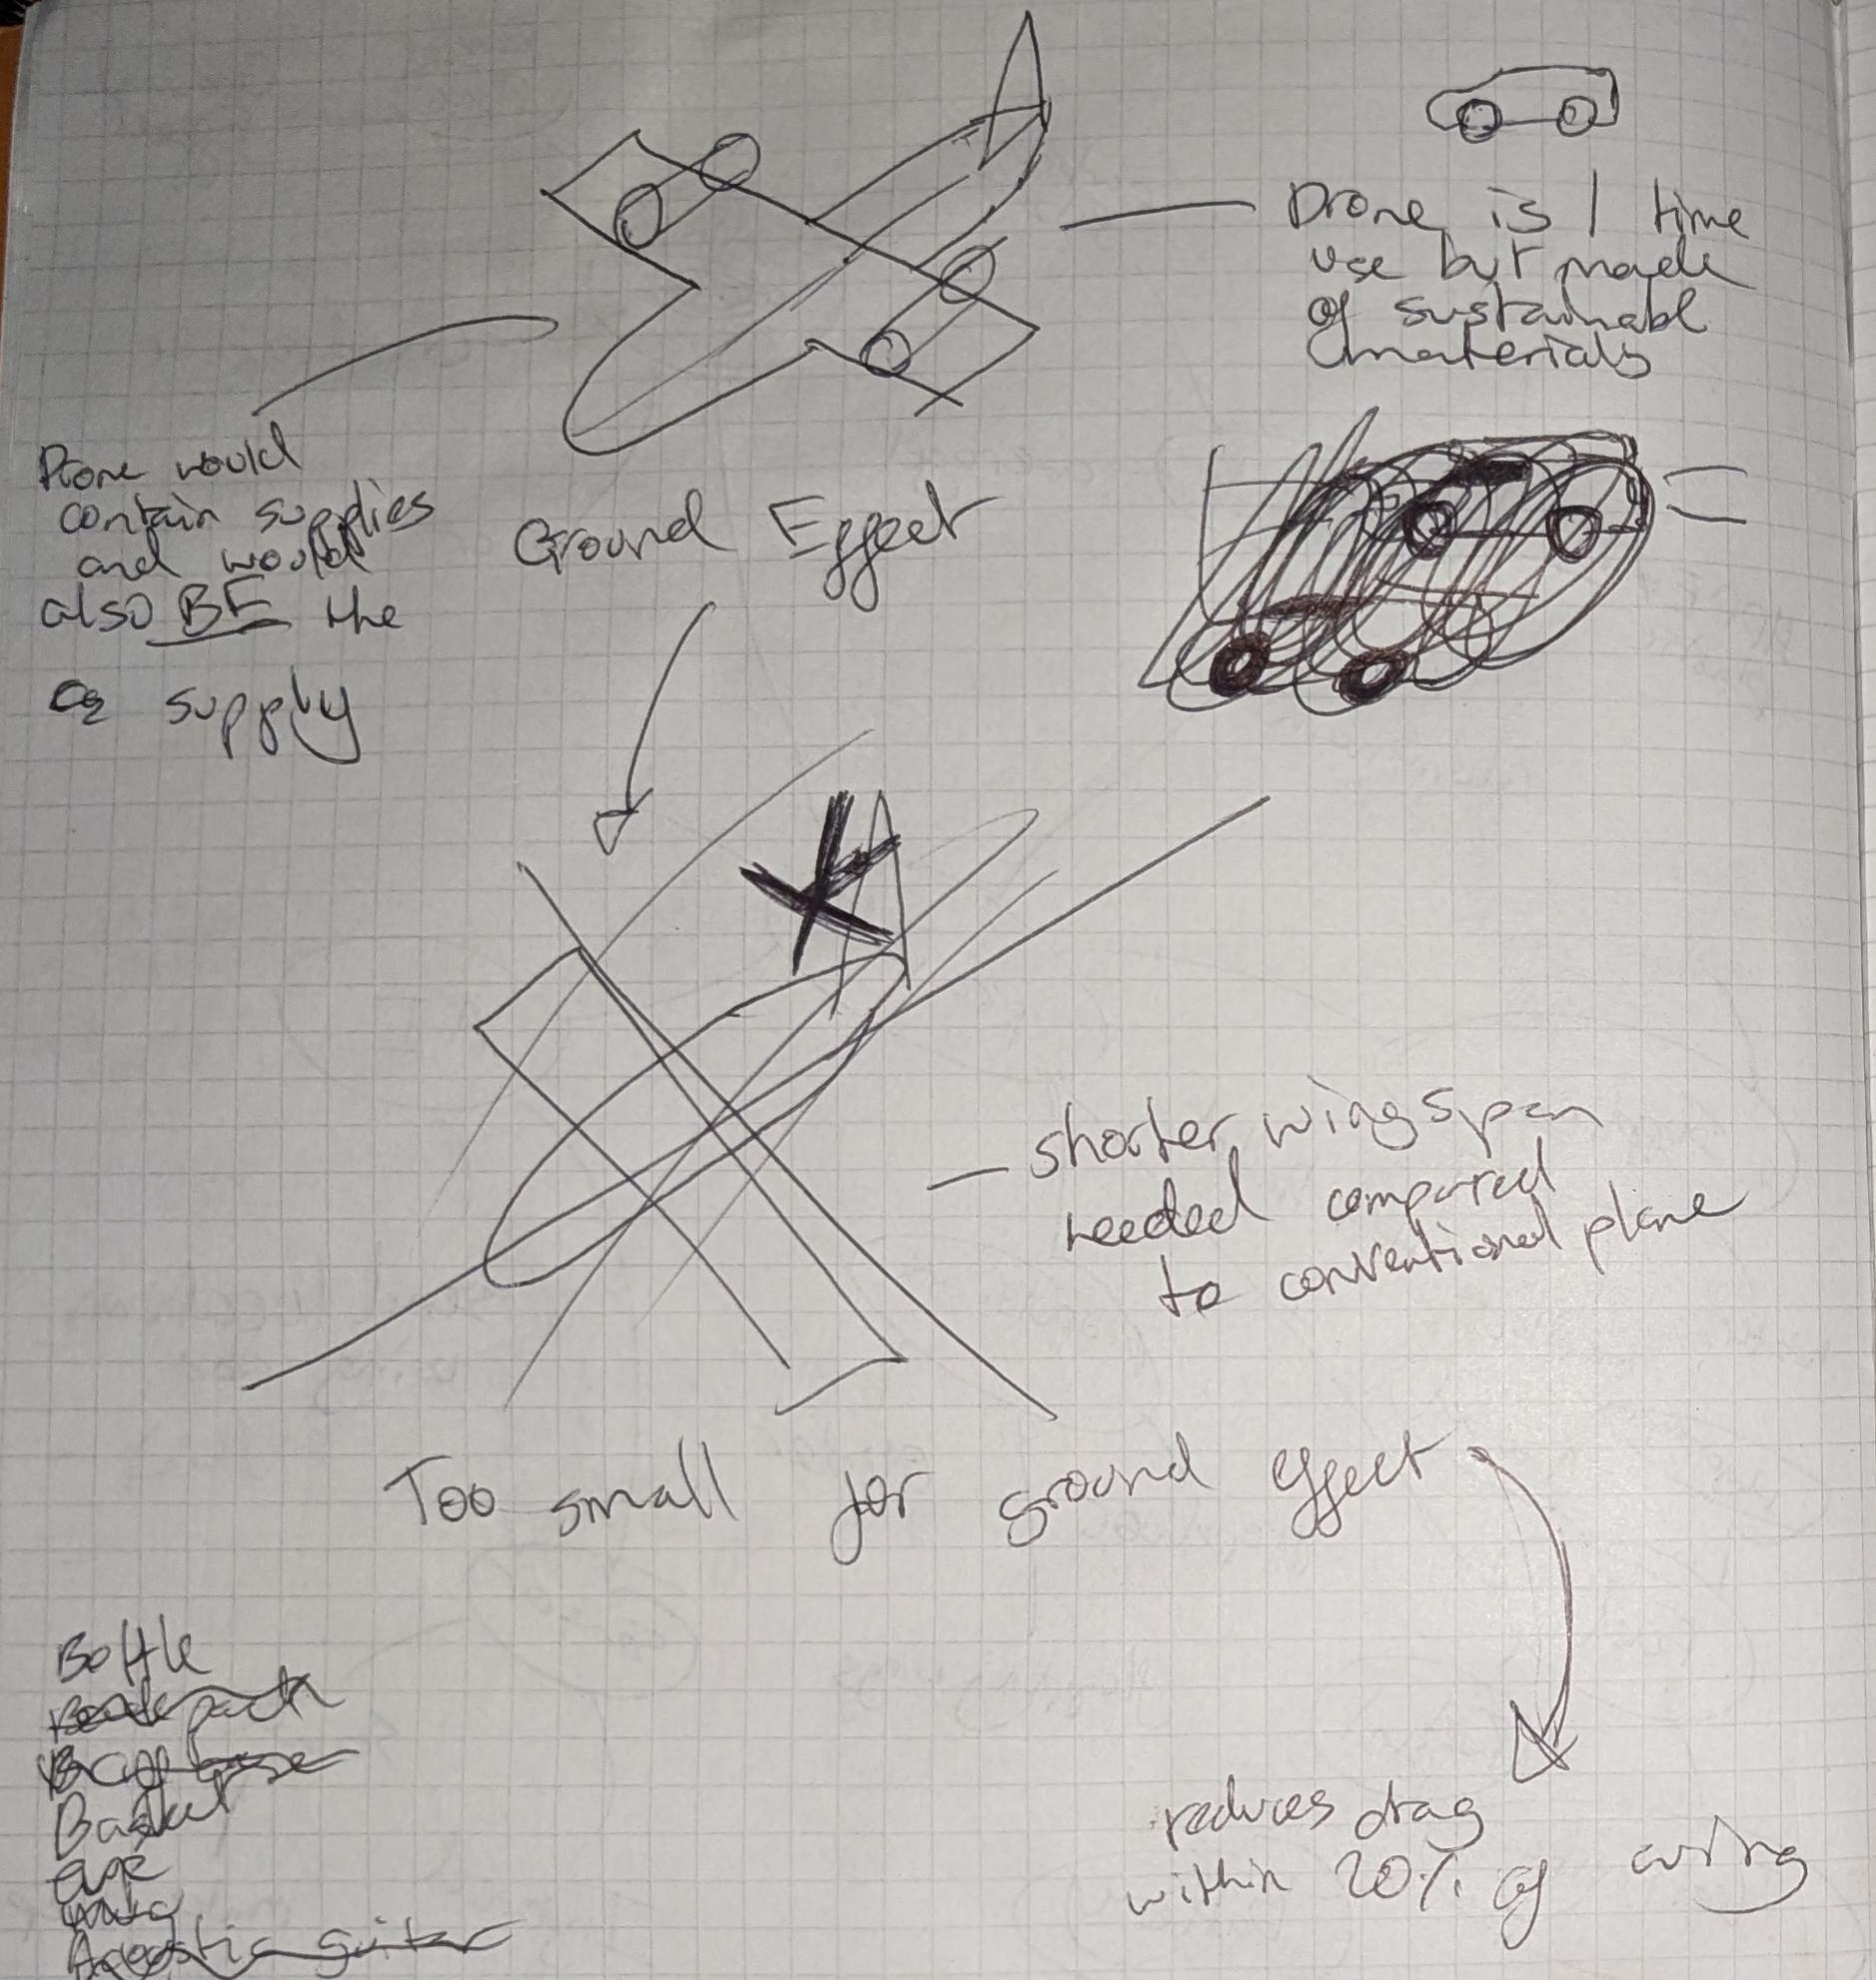 Drone is 1 time
use but made
of sustainabl
materials
Drone would
contain supplies
and would
also BE the
O2 supply
Ground Effect
shorter wingspan
needed compared
to conventional plane
Too small for ground effect
reduces drag
within 20% of wing
Bottle
Back pack
Basket
cup
mug
Acoustic guitar